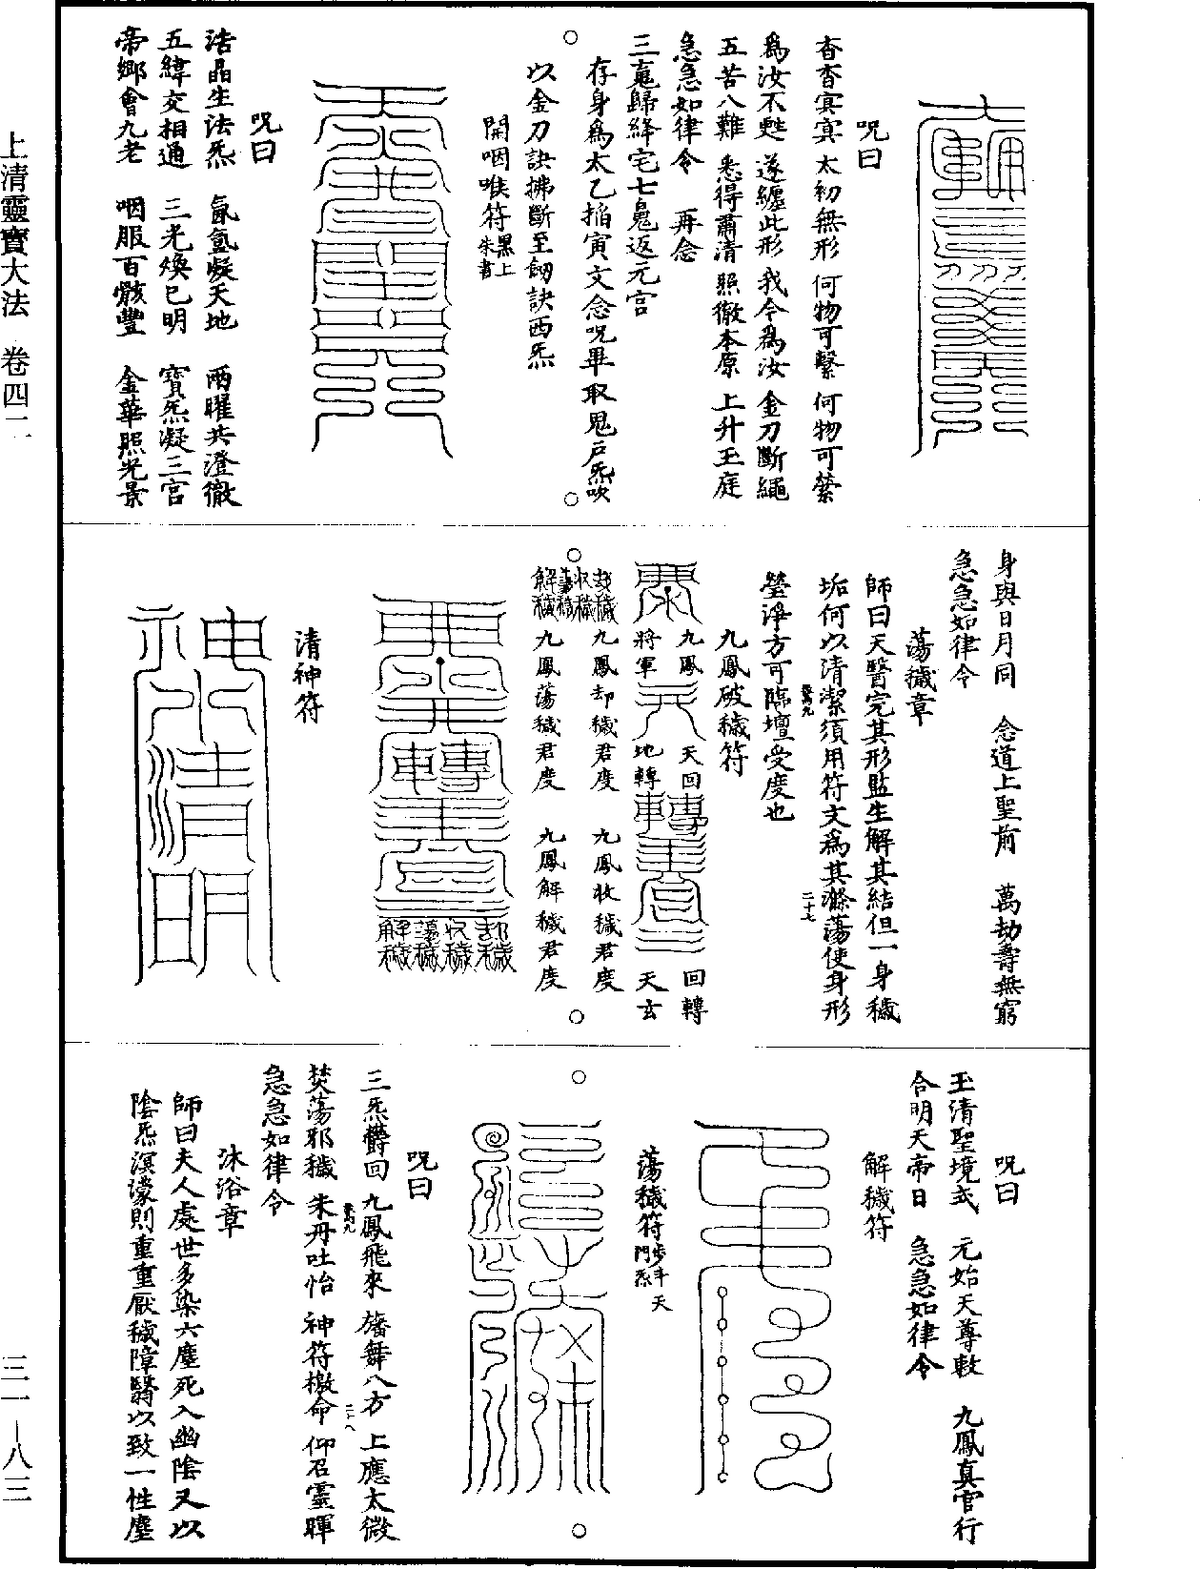 呪曰
杳杳寞寞　太初無形　何物可繫　何物可縈
爲汝不甦　遂纏此形　我今爲汝　金刀斷繩
五苦八難　悉得肅清　照徹本原　上升玉庭
急急如律令　再念
三䰟歸絳宅七鬼返元宫
存身爲太乙掐寅文念呪畢取鬼户炁吹
以金刀訣拂斷至劒訣西炁
開咽喉符黑上朱書
呪曰
浩晶生法炁　氤氲凝天地　兩曜共澄徹
五緯交相通　三光煥已明　寶炁凝三宫
帝鄉會九老　咽服百骸豐　金華照光景
身與日月同　念道上聖前　萬劫壽無窮
急急如律令
蕩穢章
師曰天醫完其形監生解其結但一身穢
垢何以清潔須用符文爲其滌蕩使身形
二十七
瑩淨方可臨壇受度也
九鳳破穢符
九鳳　天回　回轉
將軍　地轉　天玄
九鳳却穢君度　九鳳收穢君度
九鳳蕩穢君度　九鳳解穢君度
清神符
呪曰
玉清聖境式　元始天尊敕　九鳳真官行
合明天帝日　急急如律令
解穢符
蕩穢符步斗天門炁
呪曰
三炁欝回　九鳳飛來　旛舞八方　上應太微
焚蕩邪穢　朱丹吐怡　神符檄命　仰召靈暉
二十八
急急如律令
沐浴章
師曰夫人處世多染六塵死入幽陰又以
陰炁溟濛則重重厭穢障翳以致一性塵
上清靈寶大法　卷四二
三一—八三